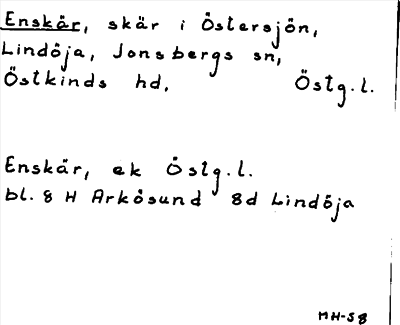 Enskär, skär i Östersjön,
Lindöja, Jonsbergs sn,
Östkinds hd, Östg.l.
Enskär, ek Östg.l.
bl. 8 H Arkösund 8d Lindöja
MH-58